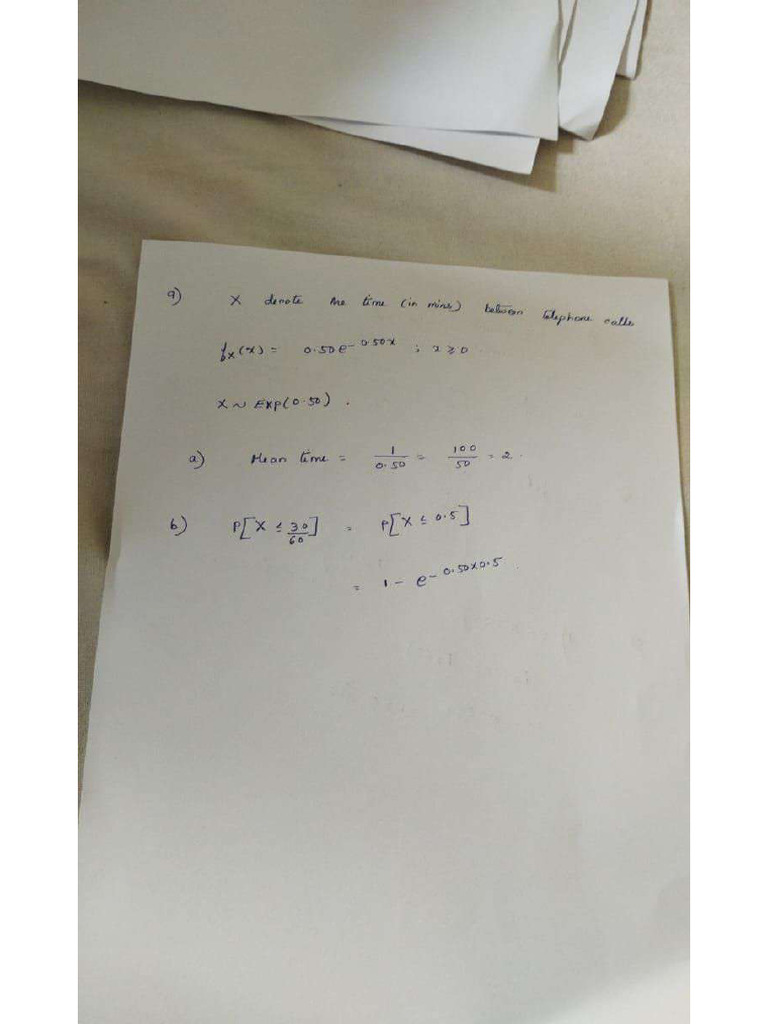 9) X denote the time (in mins) between telephone calls
fx(x) = 0.50e^-0.50x ; x ≥ 0
X ~ EXP(0.50).
a) Mean time = 1/0.50 = 100/50 = 2.
b) P[X ≤ 30/60] = P[X ≤ 0.5]
= 1 - e^-0.50×0.5.